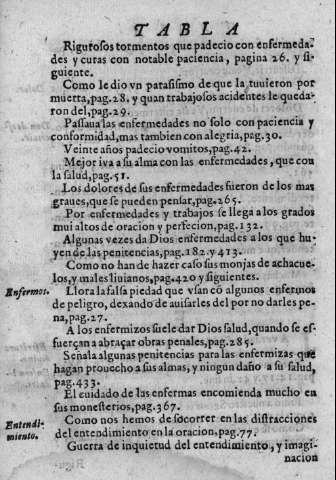 TABLA
Rigurosos tormentos que padecio con enfermeda-
des y curas con notable paciencia, pagina 26. y si-
guiente.
Como le dio vn parasismo de que la tuuieron por
muerta, pag.28. y quan trabajosos acidentes le queda-
ron del, pag.29.
Passaua las enfermedades no solo con paciencia y
conformidad, mas tambien con alegria, pag.30.
Veinte años padecio vomitos, pag.42.
Mejor iva a su alma con las enfermedades, que con
la salud, pag.51.
Los dolores de sus enfermedades fueron de los mas
graues, que se pueden pensar, pag.265.
Por enfermedades y trabajos se llega a los grados
mui altos de oracion y perfecion, pag.132.
Algunas vezes da Dios enfermedades a los que hu-
yen de las penitencias, pag.182. y 413.
Como no han de hazer caso sus monjas de achacue-
los, y males liuianos, pag.420 y siguientes.
Enfermos.
Llora la falsa piedad que vsan cõ algunos enfermos
de peligro, dexando de auisarles del por no darles pe-
na, pag.27.
A los enfermizos suele dar Dios salud, quando se es-
fuerçan a abraçar obras penales, pag.285.
Señala algunas penitencias para las enfermizas que
hagan prouecho a sus almas, y ningun daño a su salud,
pag.433.
El cuidado de las enfermas encomienda mucho en
sus monesterios, pag.367.
Entendi-
miento.
Como nos hemos de socorrer en las distracciones
del entendimiento en la oracion, pag.77.
Guerra de inquietud del entendimiento, y imagi-
nacion